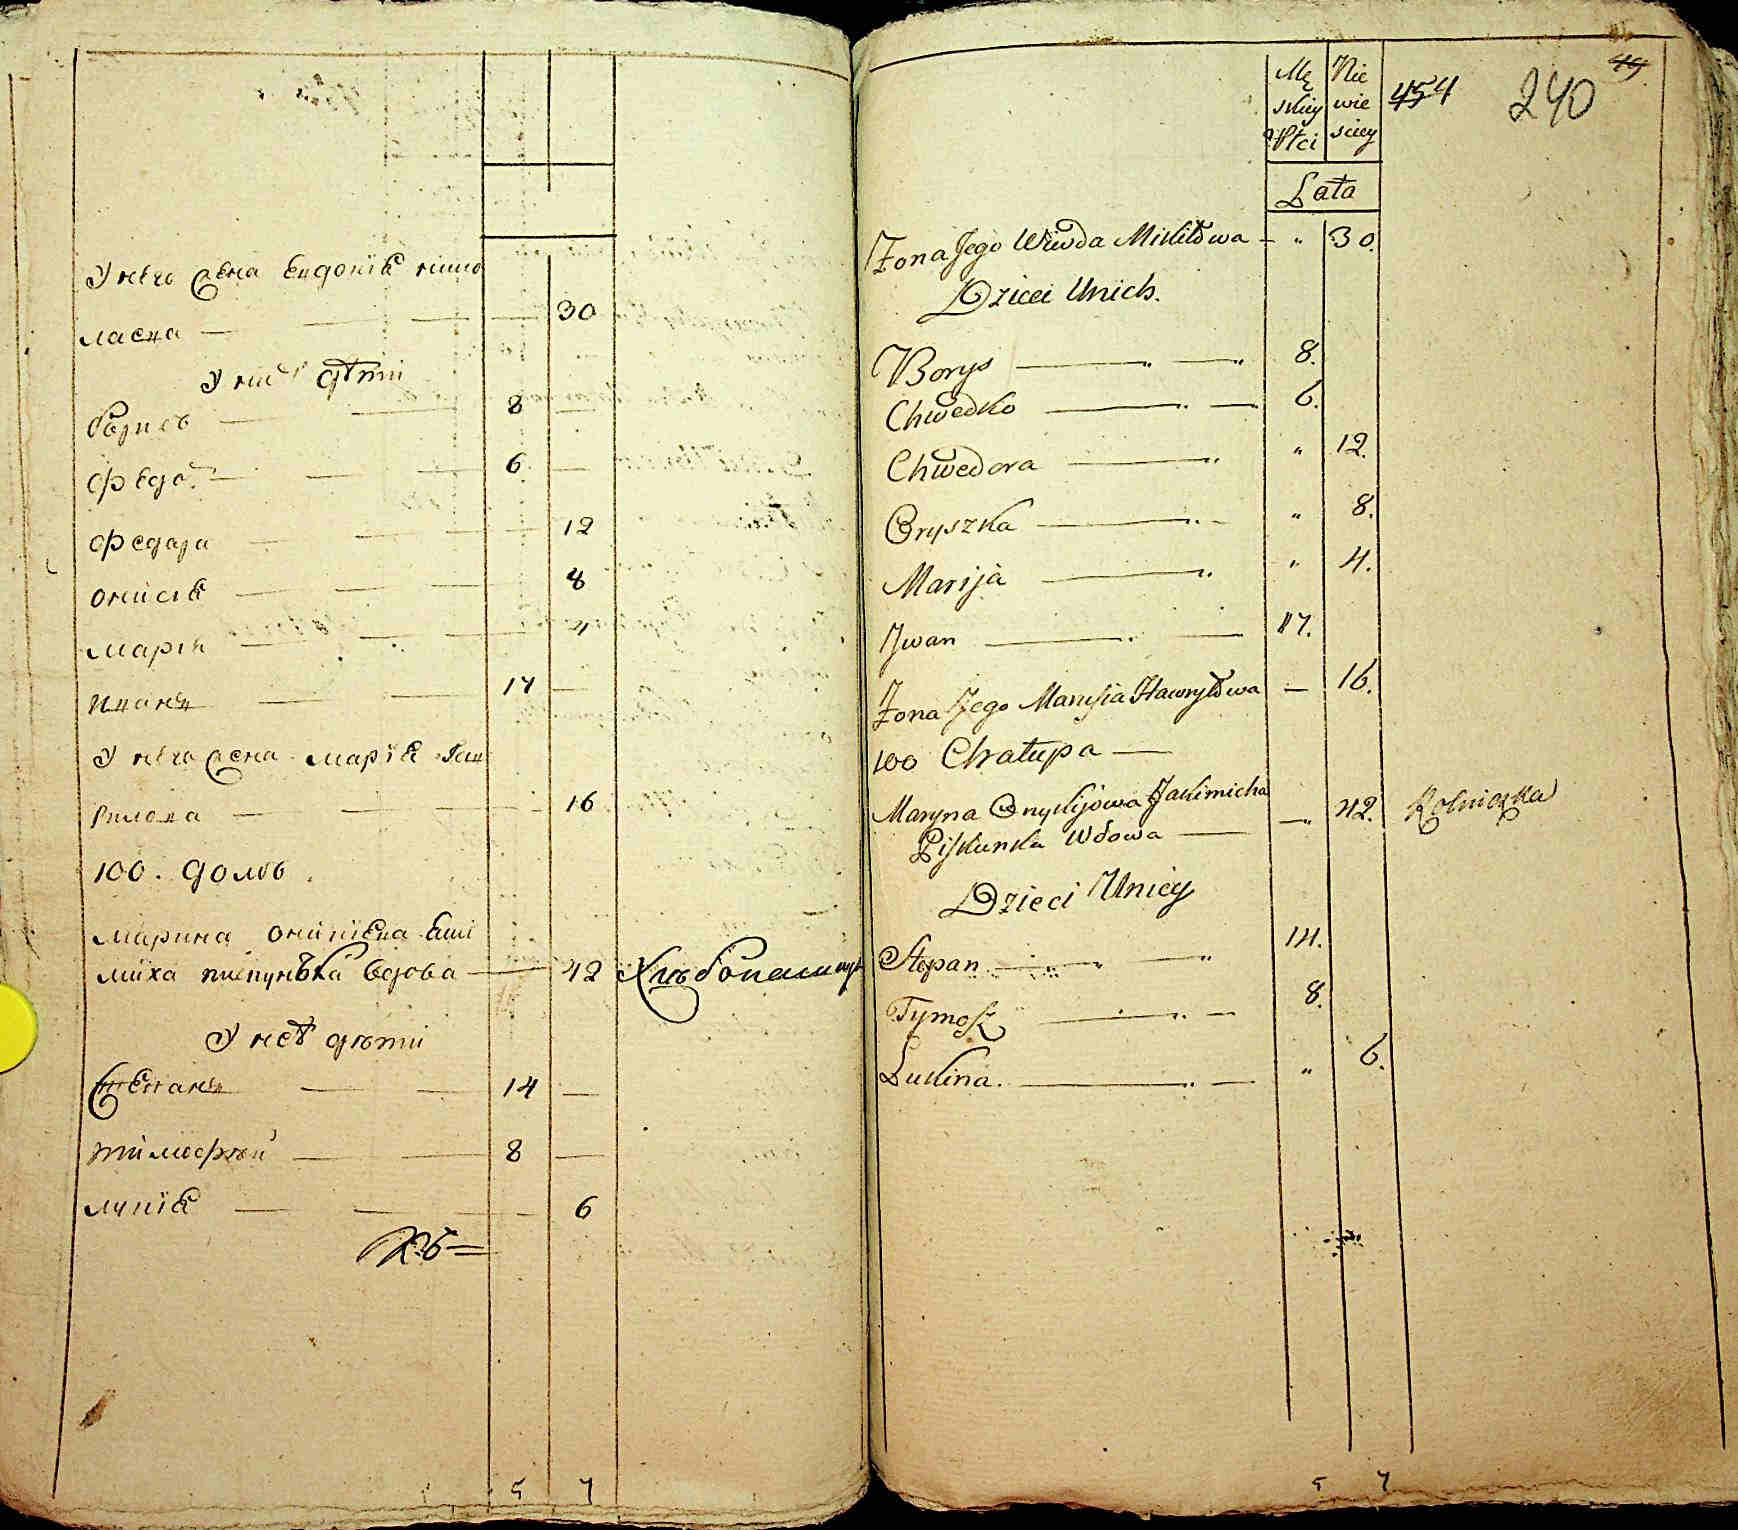 У него жена Евдокия Мики
ласва — 30
У них дѣти
Борисъ — 8 —
Федо. — 6 —
Федора — 12
Онися — 8
Мария — 4
Иванъ — 17 —
У него жена Мария Гав
рилова — 16
100. домъ.
Марина
миха вдова — 42 Хлѣбопашица
У неѣ дѣти
Степанъ — 14 —
Тимофѣй — 8 —
Лукия — 6
5 7
49
454 240
Mę skiey Płci
Nie wie sciey
Lata
Żona Jego Wiwda Mikitowa — „ 30.
Dzieci Unich.
Borys — 8.
Chwedko — 6.
Chwedora — „ 12.
Oryszka — „ 8.
Marija — „ 4.
Jwan — 17.
Żona Jego Marysia Hawryłowa — 16.
100 Chałupa —
Maryna Onykijowa Jakimicha
Piskunka Wdowa — „ 42. Rolniczka
Dzieci Uniey
Stepan — 14.
Tymosz — 8.
Lukina. — „ 6.
5 7